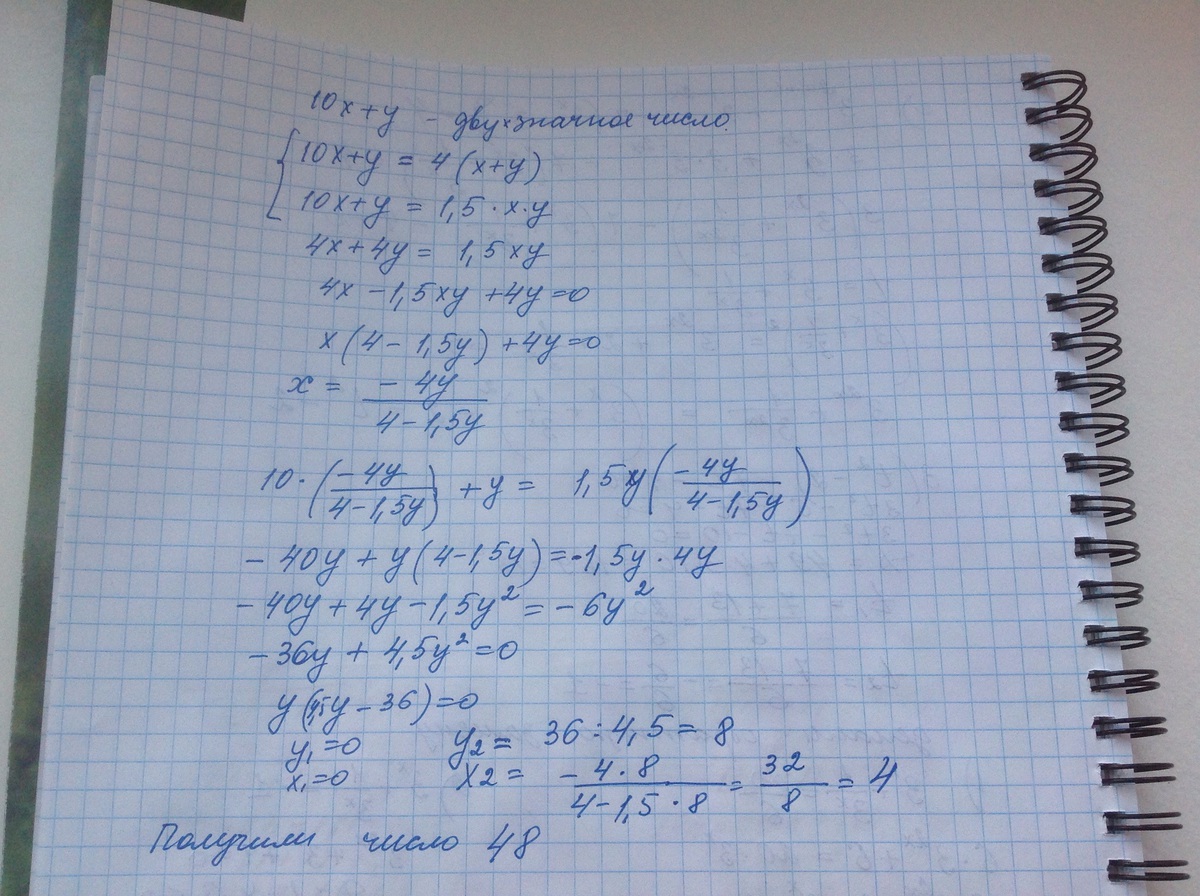 10x+y - двухзначное число.
{ 10x+y = 4(x+y)
10x+y = 1,5·x·y
4x+4y = 1,5xy
4x-1,5xy+4y=0
x(4-1,5y)+4y=0
x = -4y/(4-1,5y)
10·(-4y/(4-1,5y))+y = 1,5y(-4y/(4-1,5y))
-40y+y(4-1,5y)=-1,5y·4y
-40y+4y-1,5y²=-6y²
-36y+4,5y²=0
y(4,5y-36)=0
y₁=0 y₂= 36:4,5=8
x₁=0 x2= -4·8/(4-1,5·8) = 32/8 = 4
Получили число 48